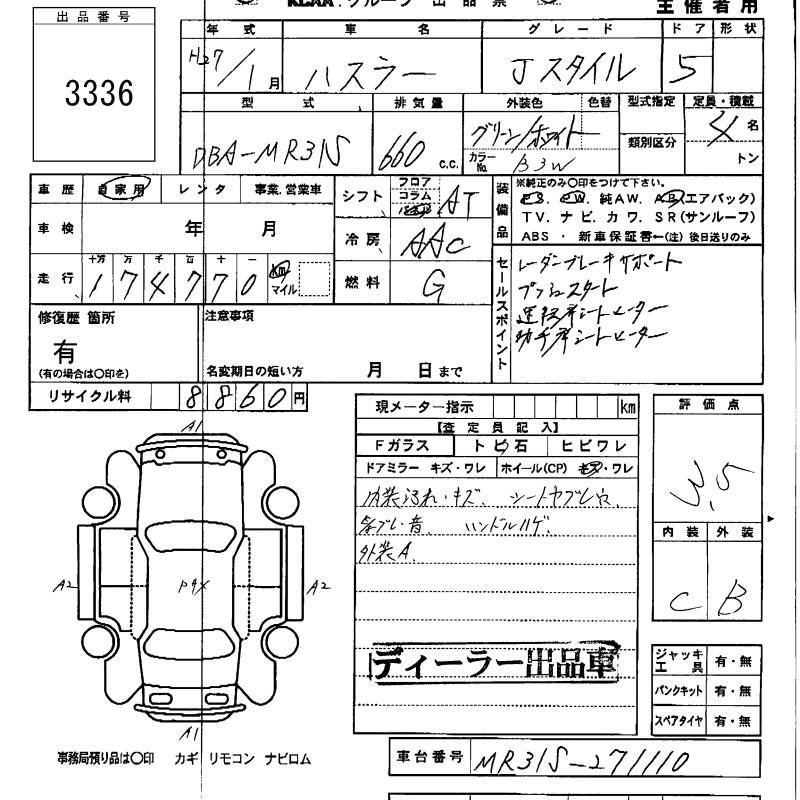 KCAA.グループ 出品票
主催者用
出品番号
3336
年式 車名 グレード ドア 形状
H27/1月 ハスラー Jスタイル 5
型式 排気量 外装色 色替 型式指定 定員・積載
DBA-MR31S 660 c.c. グリーン/ホワイト 類別区分 4名
カラーNo. B3W トン
車歴 自家用 レンタ 事業.営業車
シフト フロア コラム AT
装備品
※純正のみ〇印をつけて下さい。
P.S. P.W. 純AW. A.B(エアバック)
T V. ナビ. カワ. S R (サンルーフ)
A B S ・ 新車保証書←(注) 後日送りのみ
車検 年 月
冷房 AAC
走行 十万 万 千 百 十 一
174770 km マイル
燃料 G
セールスポイント
レーダーブレーキサポート
プッシュスタート
運転席シートヒーター
助手席シートヒーター
修復歴 箇所
有
(有の場合は〇印を)
注意事項
名変期日の短い方 月 日まで
リサイクル料 8860円
現メーター指示 km
【査定員記入】
Fガラス トビ石 ヒビワレ
ドアミラー キズ・ワレ ホイール(CP) キズ・ワレ
内装汚れ・キズ. シートヤブレ
ハンドルハゲ.
外装A.
ディーラー出品車
評価点
3.5
内装 外装
C B
A1
A2
A2
A1
ジャッキ工具 有・無
パンクキット 有・無
スペアタイヤ 有・無
事務局預り品は〇印 カギ リモコン ナビロム
車台番号 MR31S-271110